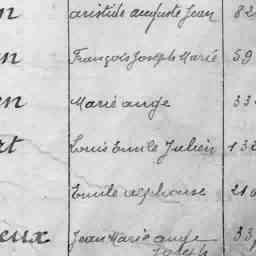 n aristide auguste Jean 82
n François Joseph Marie 59
en Marie ange 33
rt Louis Emile Julien 132
Emile alphonse 21
eux Jean Marie ange 33
Joseph